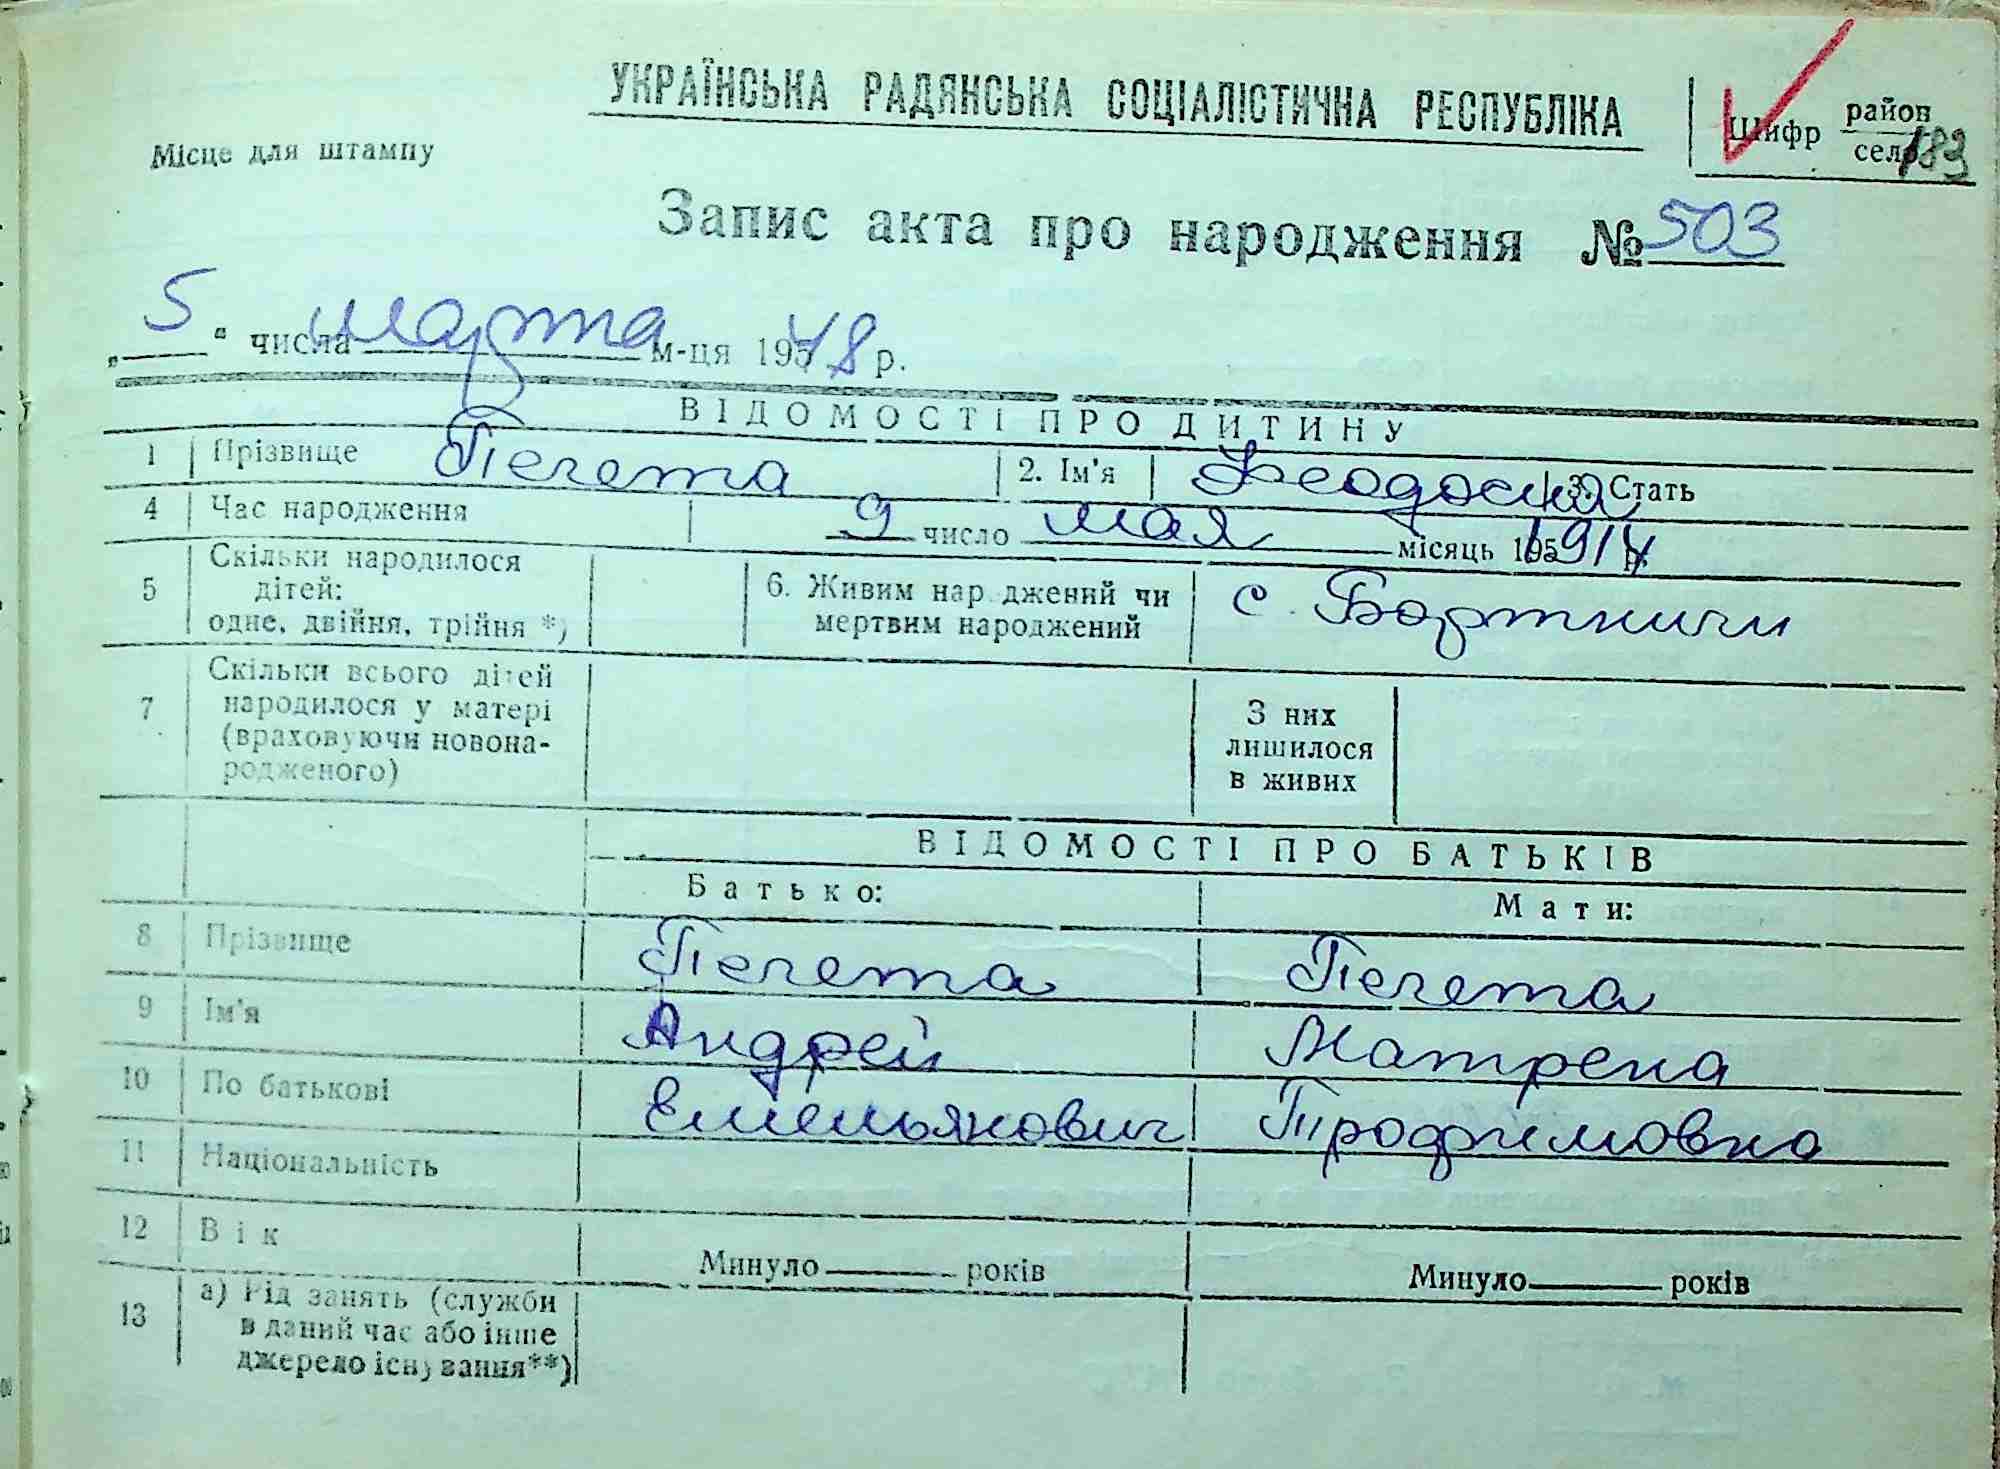 УКРАЇНСЬКА РАДЯНСЬКА СОЦІАЛІСТИЧНА РЕСПУБЛІКА
Шифр район село 183
Місце для штампу
Запис акта про народження № 503
„ 5 “ числа марта м-ця 1948 р.
ВІДОМОСТІ ПРО ДИТИНУ
1 Прізвище Печета 2. Ім'я Феодосия 3. Стать
4 Час народження 9 число мая місяць 1914 р.
5 Скільки народилося дітей: одне, двійня, трійня *) 6. Живим нар джений чи мертвим народжений с. Бортничи
7 Скільки всього дітей народилося у матері (враховуючи новона-родженого) З них лишилося в живих
ВІДОМОСТІ ПРО БАТЬКІВ
Батько: Мати:
8 Прізвище Печета Печета
9 Ім'я Андрей Матрена
10 По батькові Емельянович Трофимовна
11 Національність
12 Вік Минуло ____ років Минуло ____ років
13 а) Рід занять (служби
в даний час або інше
джерело існування**)